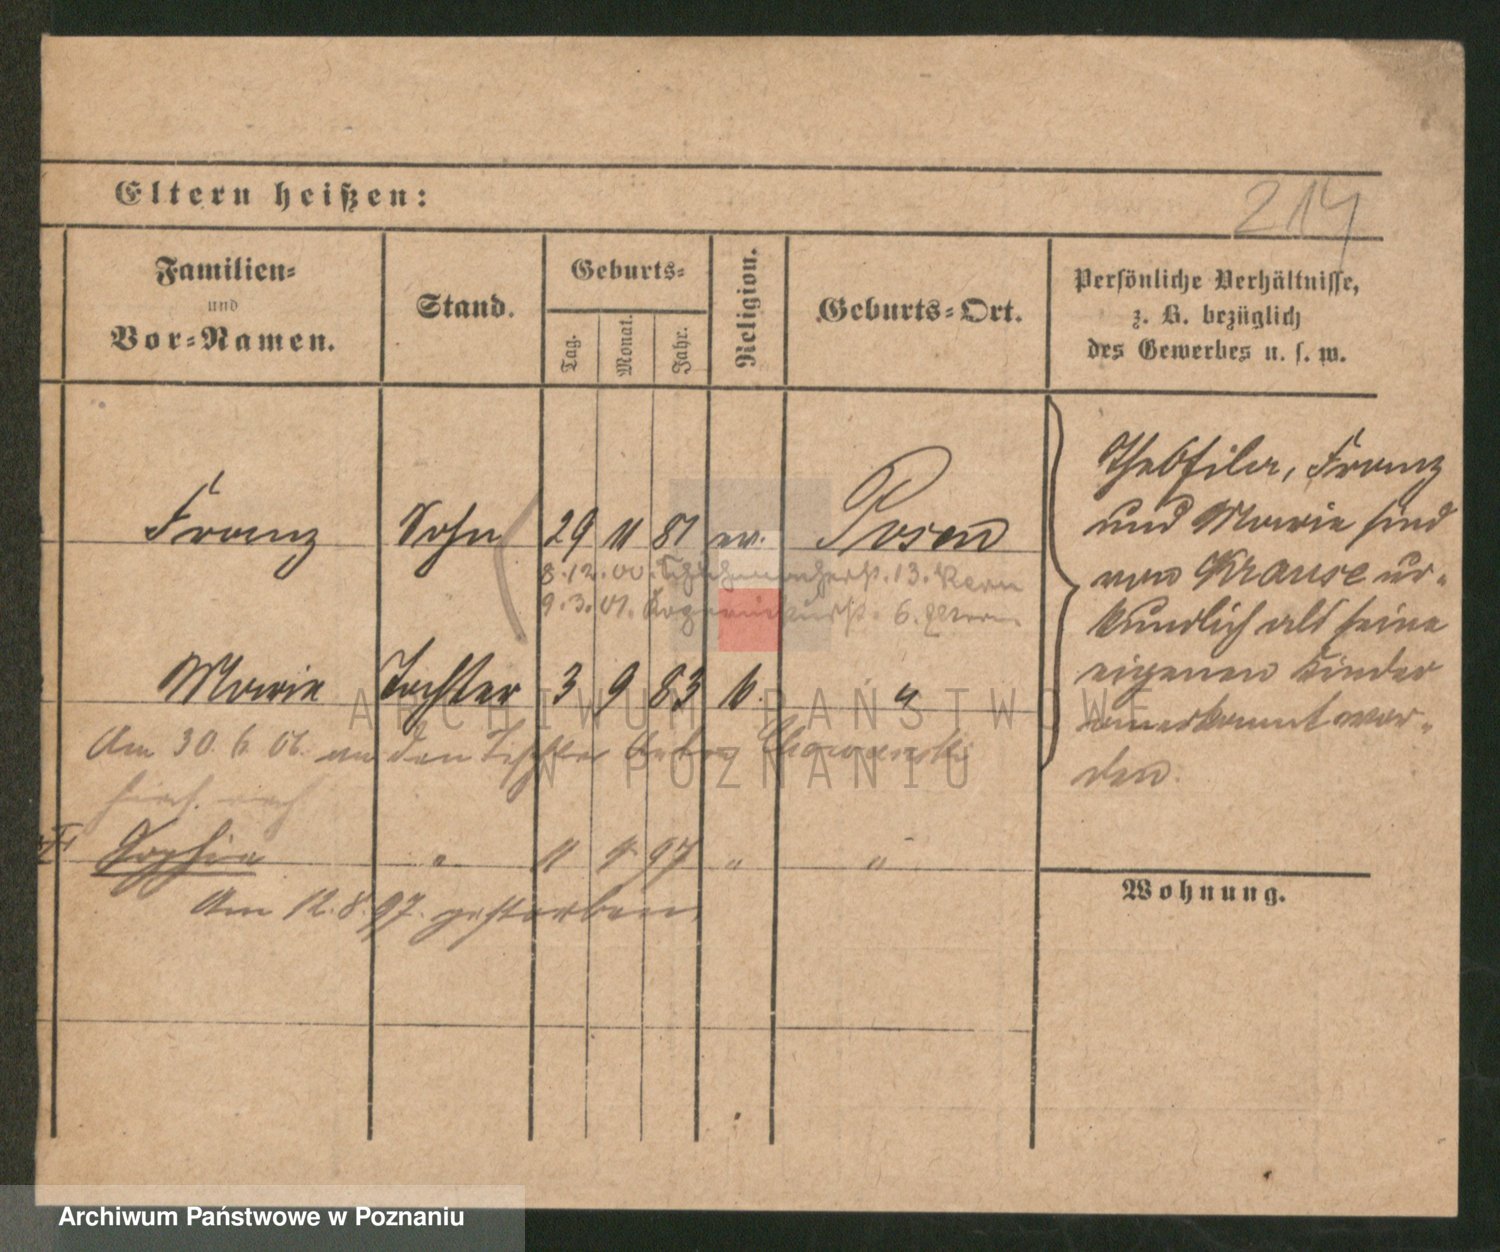 Eltern heißen:
214
Familien-
und
Vor-Namen.
Stand.
Geburts-
Tag.
Monat.
Jahr.
Religion.
Geburts-Ort.
Persönliche Verhältnisse,
z. B. bezüglich
des Gewerbes u. s. w.
Franz Sohn 29 11 81 ev. Posen
8.12.00. 13. Kern
9.3.01. 6. Eltern
Marie Tochter 3 9 83 k. "
Am 30. 6. 06. an den Tischler
ARCHIWUM PAŃSTWOWE
W POZNANIU
Sophie " 11 4 97 " "
Am 12.8.97. gestorben.
Theofila, Franz
und Marie sind
von Krause ur-
kundlich als seine
eigenen Kinder
anerkannt wor-
den.
Wohnung.
Archiwum Państwowe w Poznaniu